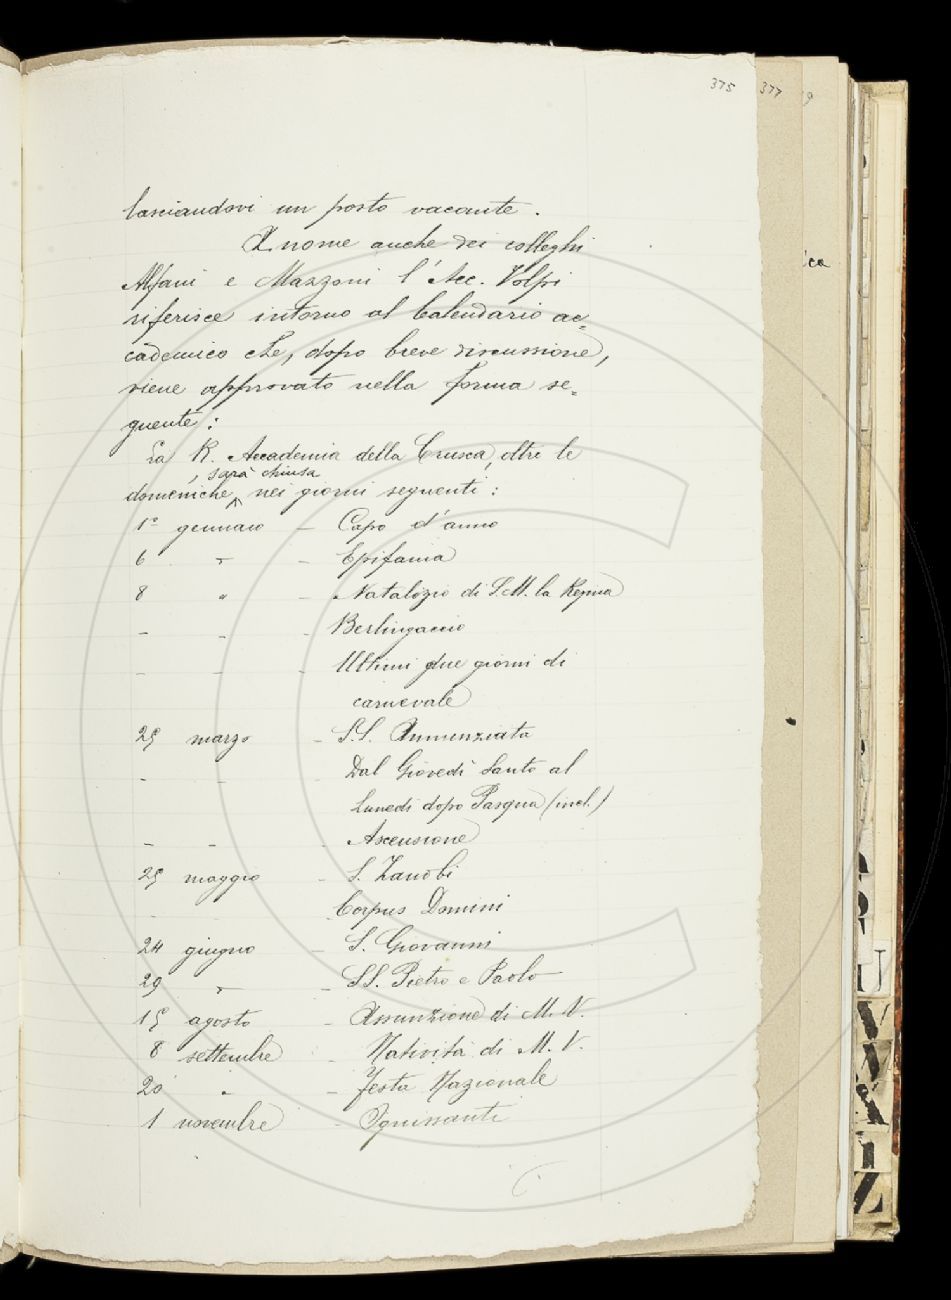 375
377
9
lasciandovi un posto vacante.
A nome anche dei colleghi
Alfani e Mazzoni l'Acc. Volpi
riferisce intorno al Calendario ac=
cademico che, dopo breve discussione,
viene approvato nella forma se=
guente:
La R. Accademia della Crusca, oltre le
, sarà chiusa
domeniche nei giorni seguenti:
1° gennaio – Capo d'anno
6 " – Epifania
8 " – Natalizio di S. M. la Regina
– – – Berlingaccio
– – – Ultimi due giorni di
carnevale
25 marzo – S.S. Annunziata
– – – Dal Giovedì Santo al
Lunedì dopo Pasqua (incl.)
– – – Ascensione
25 maggio – S. Zanobi
– – Corpus Domini
24 giugno – S. Giovanni
29 " – SS. Pietro e Paolo
15 agosto – Assunzione di M. V.
8 settembre – Natività di M. V.
20 " – Festa Nazionale
1 novembre – Ognissanti
ica
U
V
X
Z